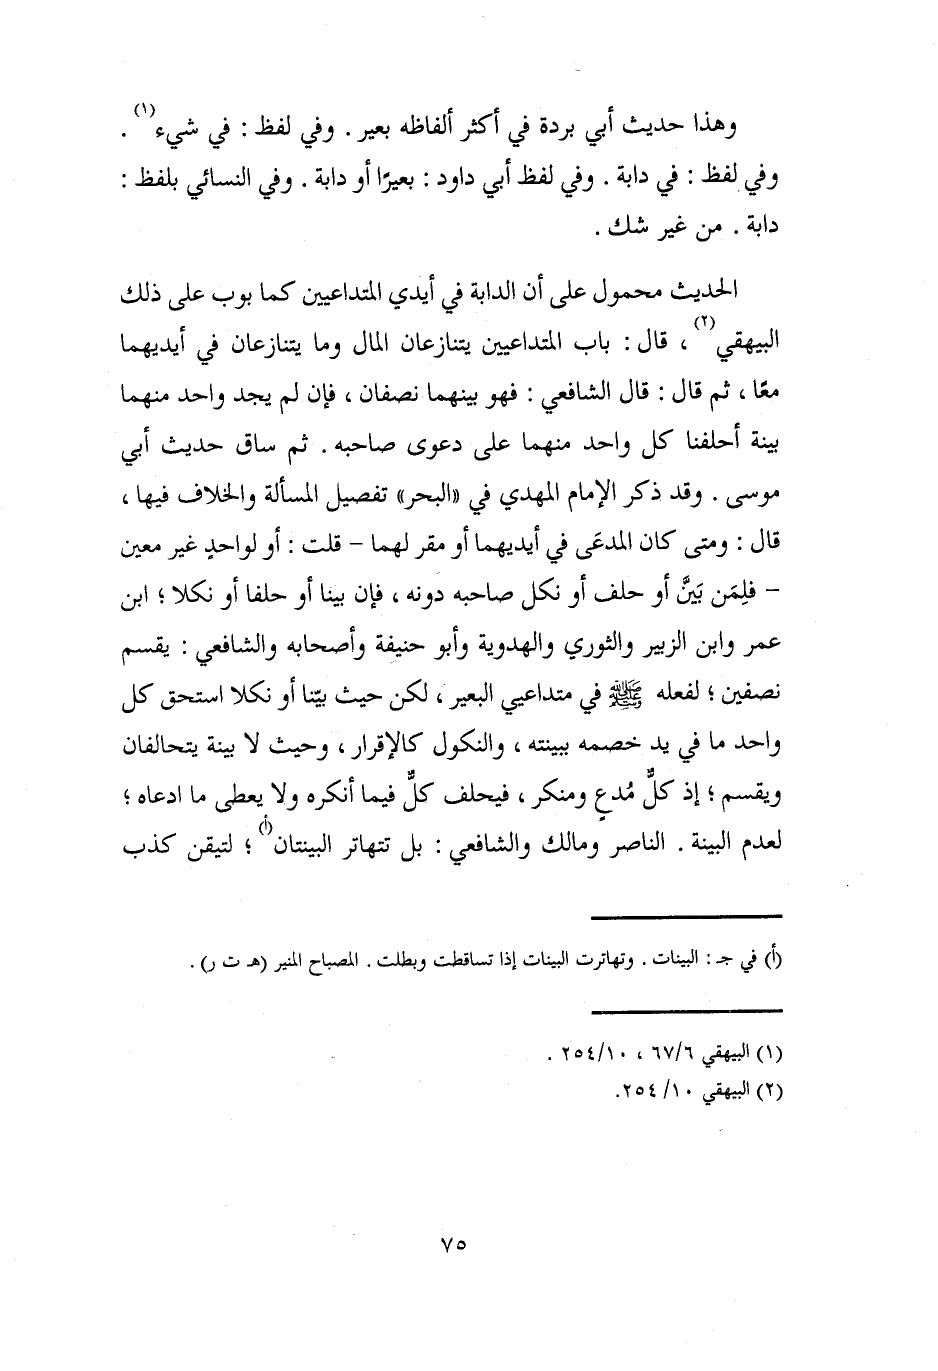 وهذا حديث أبي بردة في أكثر ألفاظه بعير . وفي لفظ : في شيء(١) .
وفي لفظ : في دابة . وفي لفظ أبي داود : بعيرًا أو دابة . وفي النسائي بلفظ :
دابة . من غير شك .
الحديث محمول على أن الدابة في أيدي المتداعيين كما بوب على ذلك
البيهقي(٢) ، قال : باب المتداعيين يتنازعان المال وما يتنازعان في أيديهما
معًا ، ثم قال : قال الشافعي : فهو بينهما نصفان ، فإن لم يجد واحد منهما
بينة أحلفنا كل واحد منهما على دعوى صاحبه . ثم ساق حديث أبي
موسى . وقد ذكر الإمام المهدي في «البحر» تفصيل المسألة والخلاف فيها ،
قال : ومتى كان المدعَى في أيديهما أو مقر لهما – قلت : أو لواحدٍ غير معين
– فلِمَن بَيَّن أو حلف أو نكل صاحبه دونه ، فإن بينا أو حلفا أو نكلا ؛ ابن
عمر وابن الزبير والثوري والهدوية وأبو حنيفة وأصحابه والشافعي : يقسم
نصفين ؛ لفعله ﷺ في متداعيي البعير ، لكن حيث بيّنا أو نكلا استحق كل
واحد ما في يد خصمه ببينته ، والنكول كالإقرار ، وحيث لا بينة يتحالفان
ويقسم ؛ إذ كلٌّ مُدعٍ ومنكر ، فيحلف كلٌّ فيما أنكره ولا يعطى ما ادعاه ؛
لعدم البينة . الناصر ومالك والشافعي : بل تتهاتر البينتان(أ) ؛ لتيقن كذب
(أ) في جـ : البينات . وتهاترت البينات إذا تساقطت وبطلت . المصباح المنير (هـ ت ر) .
(١) البيهقي ٦٧/٦ ، ٢٥٤/١٠ .
(٢) البيهقي ٢٥٤/١٠.
٧٥